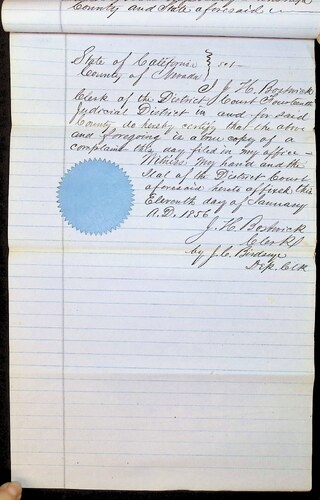 County and State aforesaid
State of California } sct
County of Nevada
I J. H. Bostwick
Clerk of the District Court Fourteenth
Judicial District in and for said
County do hereby certify that the above
and foregoing is a true copy of a
complaint this day filed in my office
Witness my hand and the
Seal of the District Court
aforesaid hereto affixed this
Eleventh day of January
A.D. 1856
J. H. Bostwick
Clerk
by J. C. Birdseye
Dep. Clk